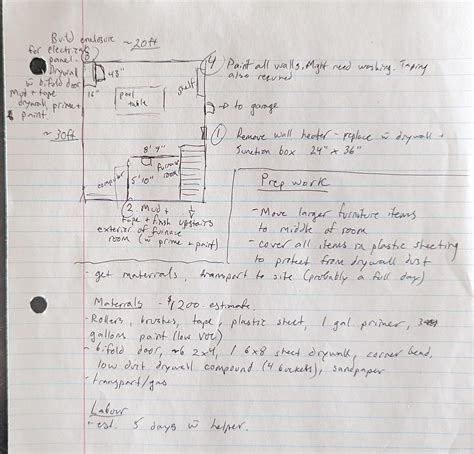 Build enclosure
for electrical
panel.
Drywall
w bifold door
Mud + tape
drywall, prime +
paint.
~20ft
~30ft
3
48"
16"
pool
table
shelf
4 Paint all walls. Might need washing. Taping
also required
→ to garage
1 Remove wall heater - replace w drywall +
Junction box 24" x 36"
8' 9"
5' 10"
furnace
room
computer
upstairs
2 Mud +
tape + finish
exterior of furnace
room (w prime + paint)
Prep work
- Move larger furniture items
to middle of room
- cover all items in plastic sheeting
to protect from drywall dust
- get materials, transport to site (probably a full day)
Materials - $1200 estimate.
- Rollers, brushes, tape, plastic sheet, 1 gal. primer, 3
gallons paint (low VOC)
- bifold door, ~6 2x4, 1 6x8 sheet drywall, corner bead,
low dust drywall compound (4 buckets), sandpaper
- transport/gas
Labour
- est. 5 days w helper.